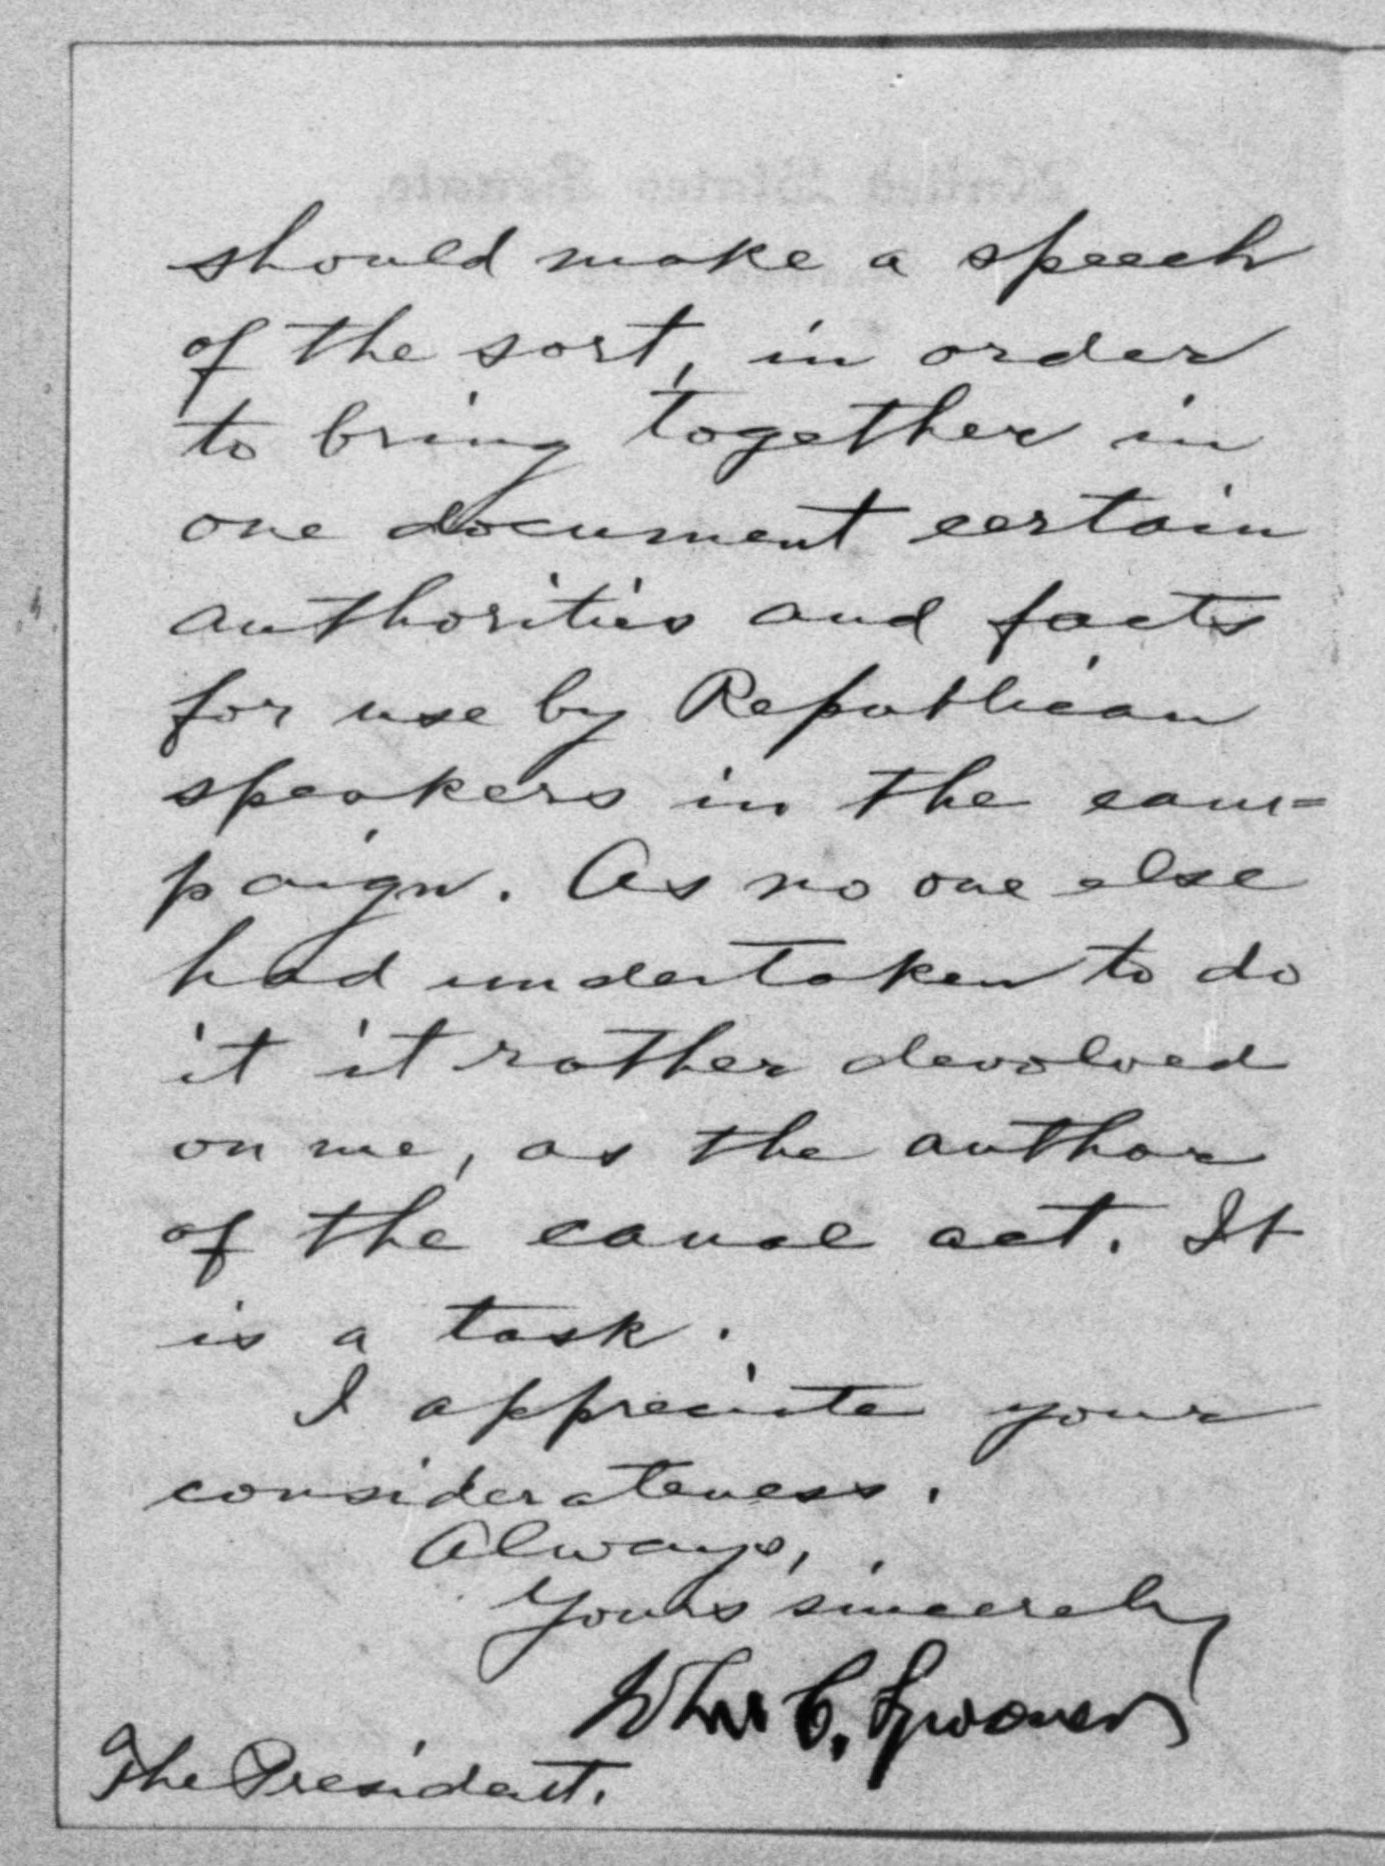 should make a speech
of the sort, in order
to bring together in
one document certain
authorities and facts
for use by Republican
speakers in the cam=
paign. As no one else
had undertaken to do
it it rather devolved
on me, as the author
of the canal act. It
is a task.
I appreciate your
considerateness.
Always,
Yours sincerely
John C. Spooner
The President.